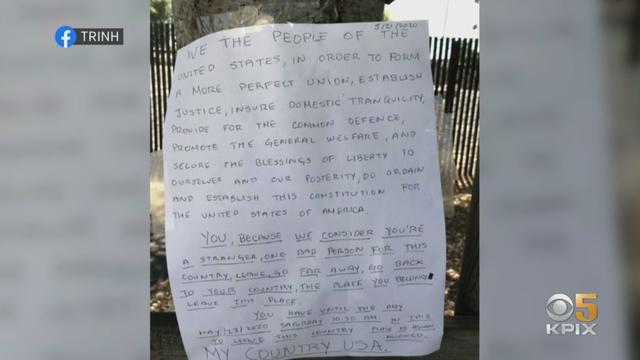 TRINH
5/21/2020
WE THE PEOPLE OF THE
UNITED STATES, IN ORDER TO FORM
A MORE PERFECT UNION, ESTABLISH
JUSTICE, INSURE DOMESTIC TRANQUILITY,
PROVIDE FOR THE COMMON DEFENCE,
PROMOTE THE GENERAL WELFARE, AND
SECURE THE BLESSINGS OF LIBERTY TO
OURSELVES AND OUR POSTERITY, DO ORDAIN
AND ESTABLISH THIS CONSTITUTION FOR
THE UNITED STATES OF AMERICA.
YOU, BECAUSE WE CONSIDER YOU'RE
A STRANGER, ONE BAD PERSON FOR THIS
COUNTRY, LEAVE, GO FAR AWAY, GO BACK
TO YOUR COUNTRY, THE PLACE YOU BELONG
LEAVE THIS PLACE.
YOU HAVE UNTIL THE DAY
MAY/23/2020 SATURDAY 10:30 AM. IN THIS
TO LEAVE THIS COUNTRY NO ALLOWED.
MY COUNTRY USA.
5
KPIX